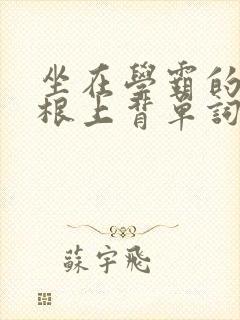 坐在學霸的
根上背單詞
蘇宇飛